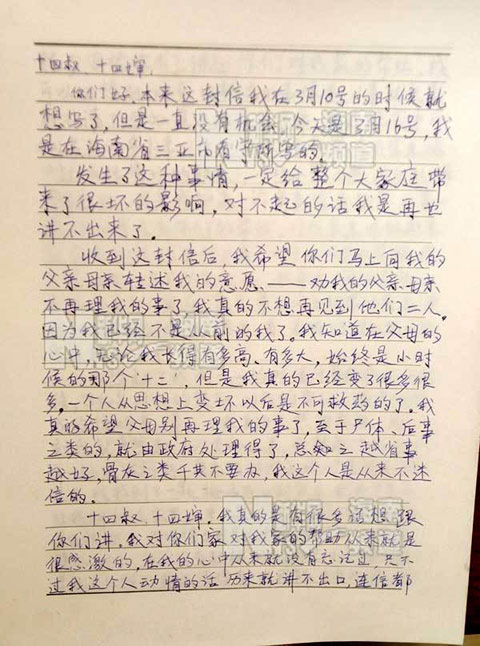 十四叔、十四婶,
你们好.本来这封信我在3月10号的时候就
想写了,但是一直没有机会.今天是3月16号,我
是在海南省三亚市看守所写的.
发生了这种事情,一定给整个大家庭带
来了很坏的影响,对不起的话我是再也
讲不出来了.
收到这封信后,我希望你们马上向我的
父亲母亲转述我的意愿.——劝我的父亲母亲
不再理我的事了.我真的不想再见到他们二人.
因为我已经不是从前的我了.我知道在父母的
心中,无论我长得有多高、有多大,始终是小时
候的那个“十二”,但是我真的已经变了很多很
多,一个人从思想上变坏以后是不可救药的了.我
真的希望父母别再理我的事了,至于尸体、后事
之类的,就由政府处理得了,总知之越省事
越好,骨灰之类千其不要办,我这个人是从来不迷
信的.
十四叔、十四婶.我真的是有很多话想跟
你们讲,我对你们家对我家的帮助从来就是
很感激的,在我的心中从来就没有忘记过,只不
过我这个人动情的话历来就讲不出口,连信都